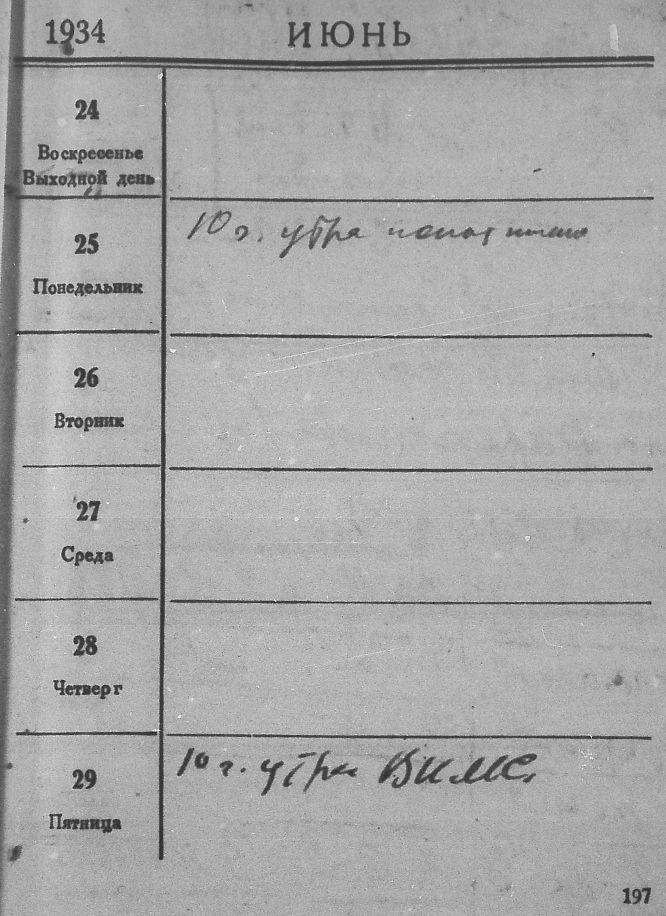 1934 ИЮНЬ
24
Воскресенье
Выходной день
25
Понедельник
10 г. утра
26
Вторник
27
Среда
28
Четверг
29
Пятница
10 г. утра ВИМС.
197